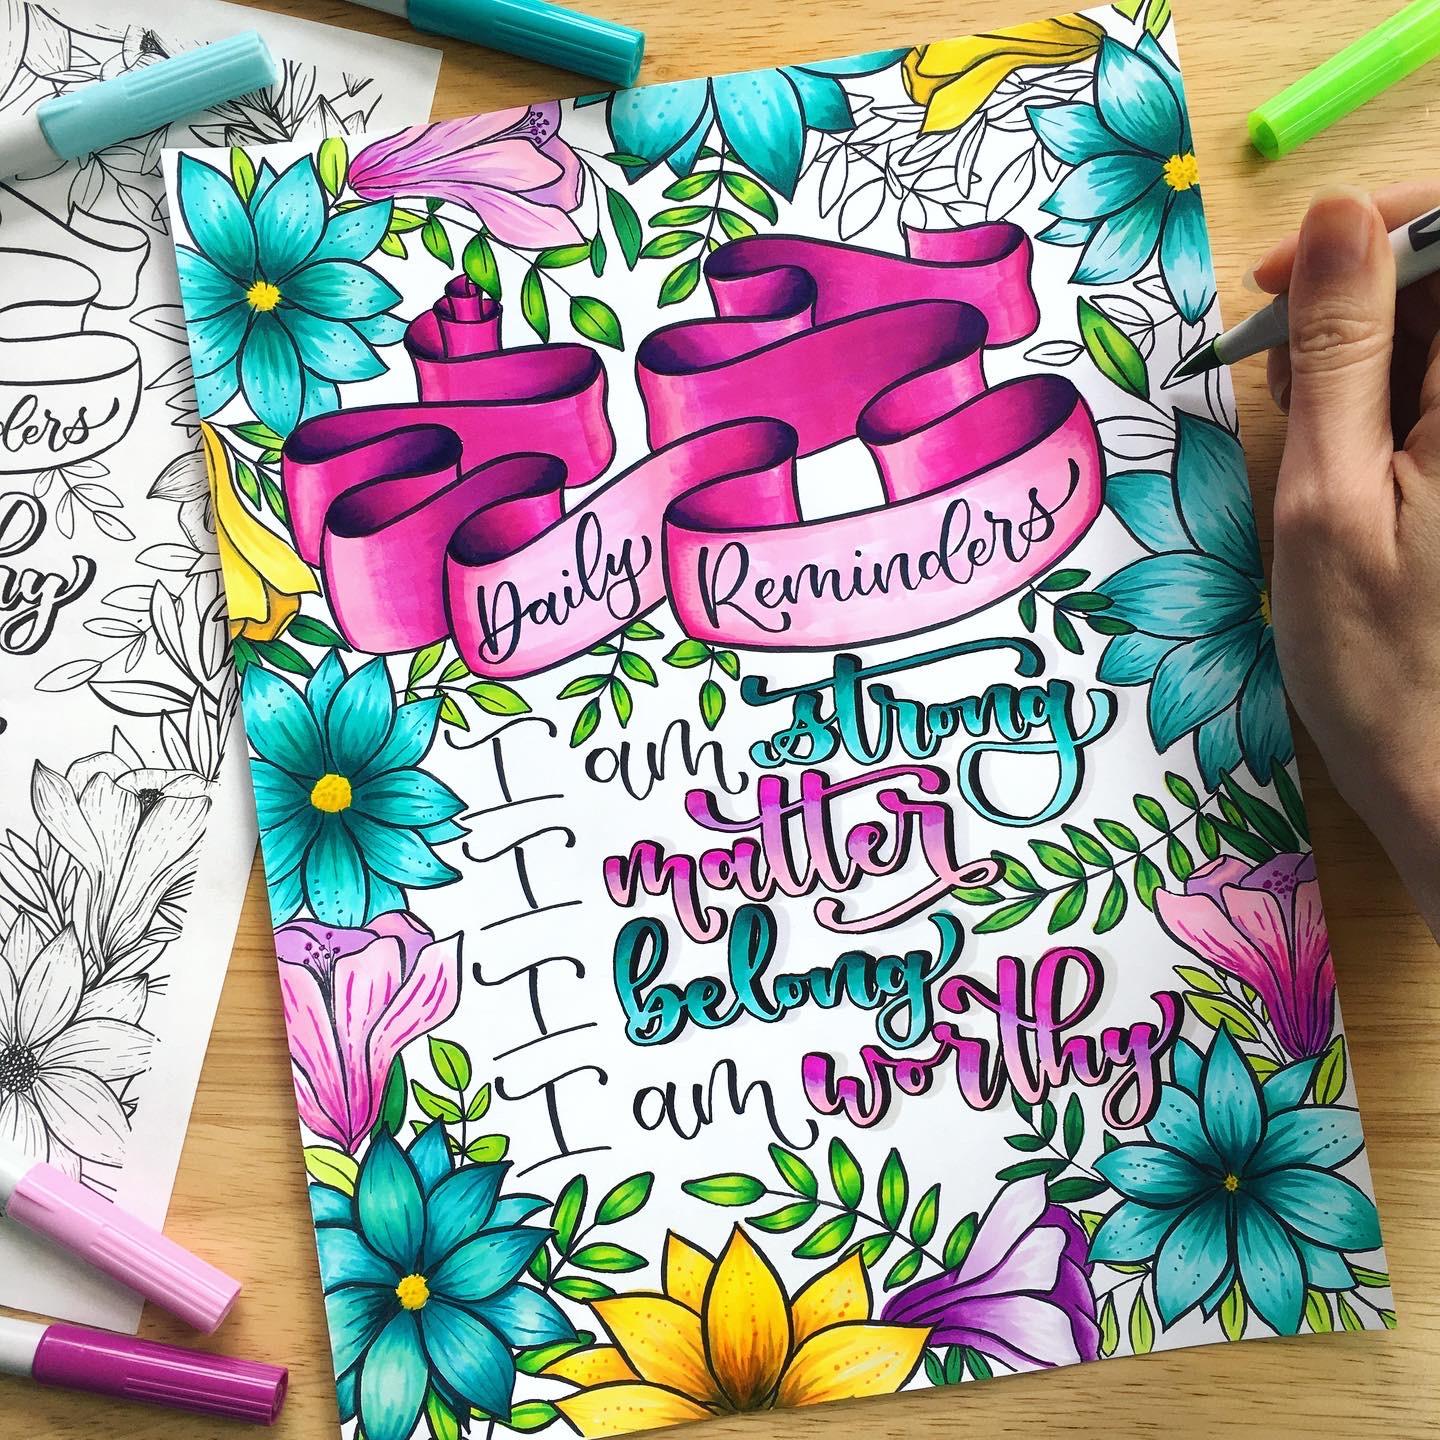 Daily Reminders
I am strong
I matter
I belong
I am worthy
ders
hy